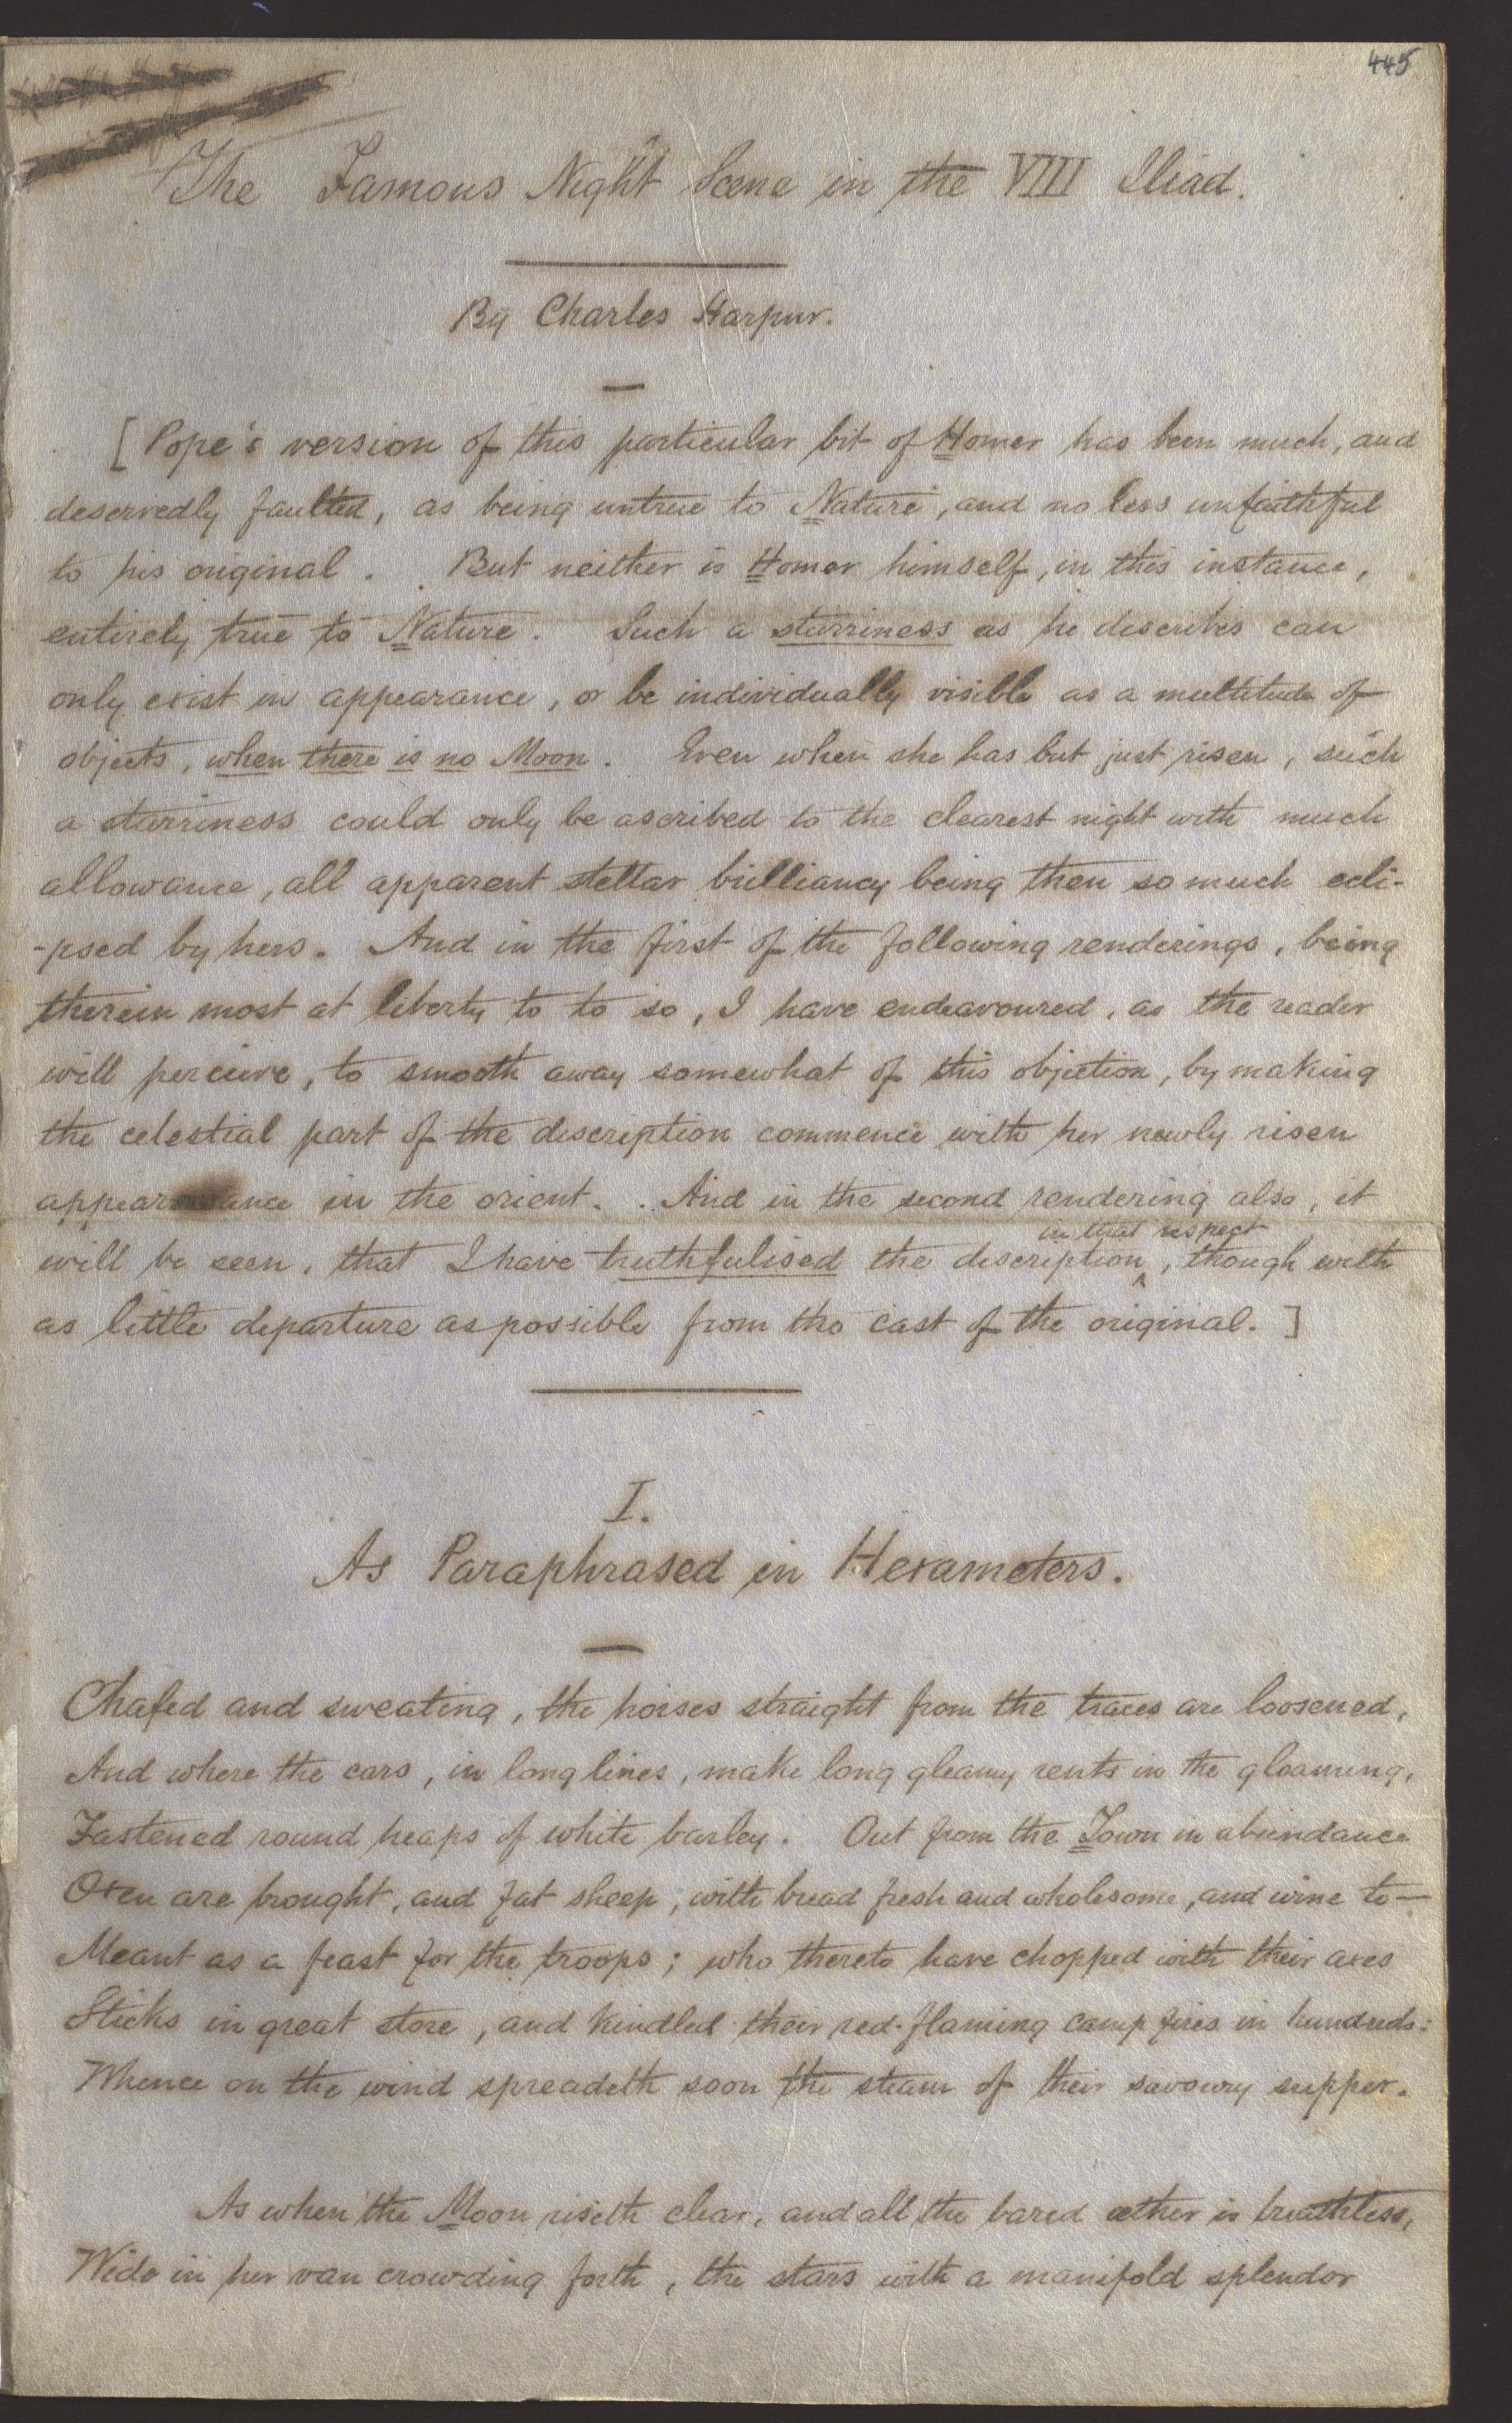 445
The Famous Night Scene in the VIII Iliad.
By Charles Harpur.
[ Pope's version of this particular bit of Homer has been much, and
deservedly faulted, as being untrue to Nature, and no less unfaithful
to his original. But neither is Homer himself, in this instance,
entirely true to Nature. Such a starriness as he describes can
only exist in appearance, or be individually visible as a multitude of
objects, when there is no Moon. Even when she has but just risen, such
a starriness could only be ascribed to the clearest night with much
allowance, all apparent stellar brilliancy being then so much ecli-
-psed by hers. And in the first of the following renderings, being
therein most at liberty to to so, I have endeavoured, as the reader
will percieve, to smooth away somewhat of this objection, by making
the celestial part of the description commence with her newly risen
appearance in the orient. . And in the second rendering also, it
in that respect
will be seen, that I have truthfulised the description ^, though with
as little departure as possible from the cast of the original. ]
I.
As Paraphrased in Hexameters.
Chafed and sweating, the horses straight from the traces are loosened,
And where the cars, in long lines, make long gleamy rents in the gloaming,
Fastened round heaps of white barley. Out from the Town in abundance
Oxen are brought, and fat sheep, with bread fresh and wholesome, and wine to—
Meant as a feast for the troops; who thereto have chopped with their axes
Sticks in great store, and kindled their red-flaming camp fires in hundreds:
Whence on the wind spreadeth soon the steam of their savoury supper.
As when the Moon riseth clear, and all the bared æther is breathless,
Wide in her van crowding forth, the stars with a manifold splendor